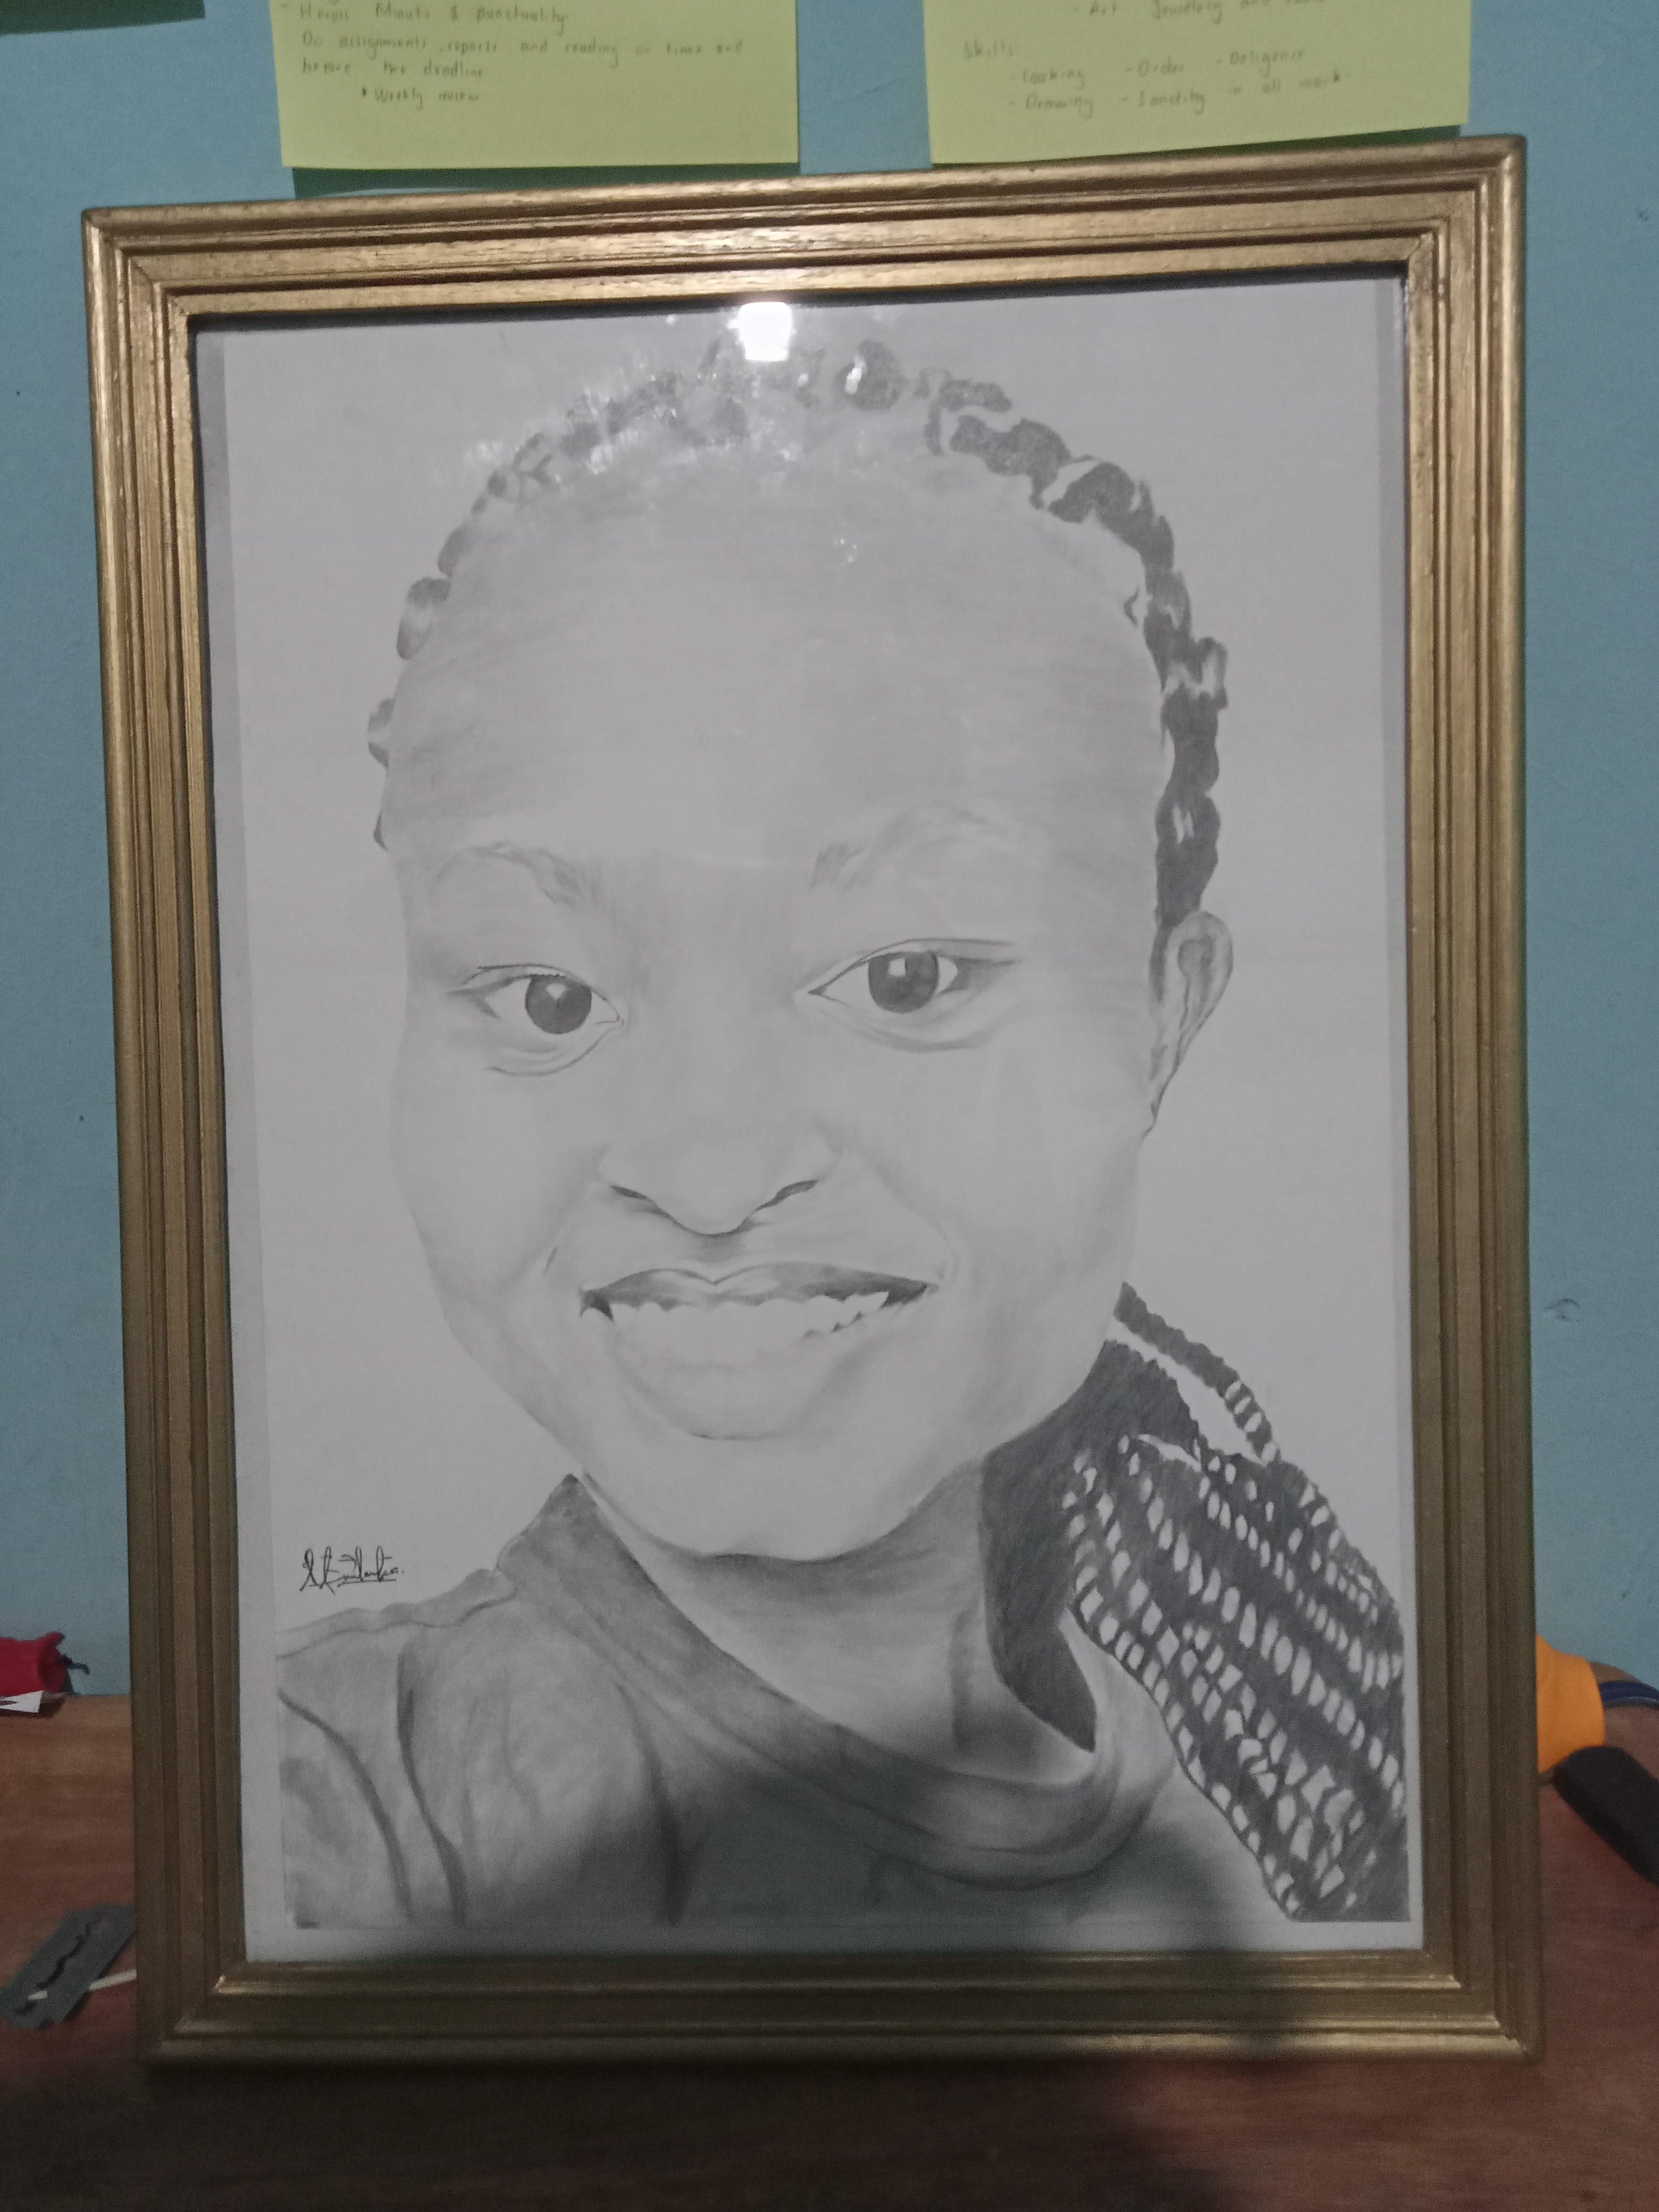 - Heroic Minute & punctuality
- Do assignments, reports and reading on time and
before the deadline
* Weekly review
- Art Jewellery and
Skills
- Cooking - Order - Deligence
- Drawing - Sanctity in all work